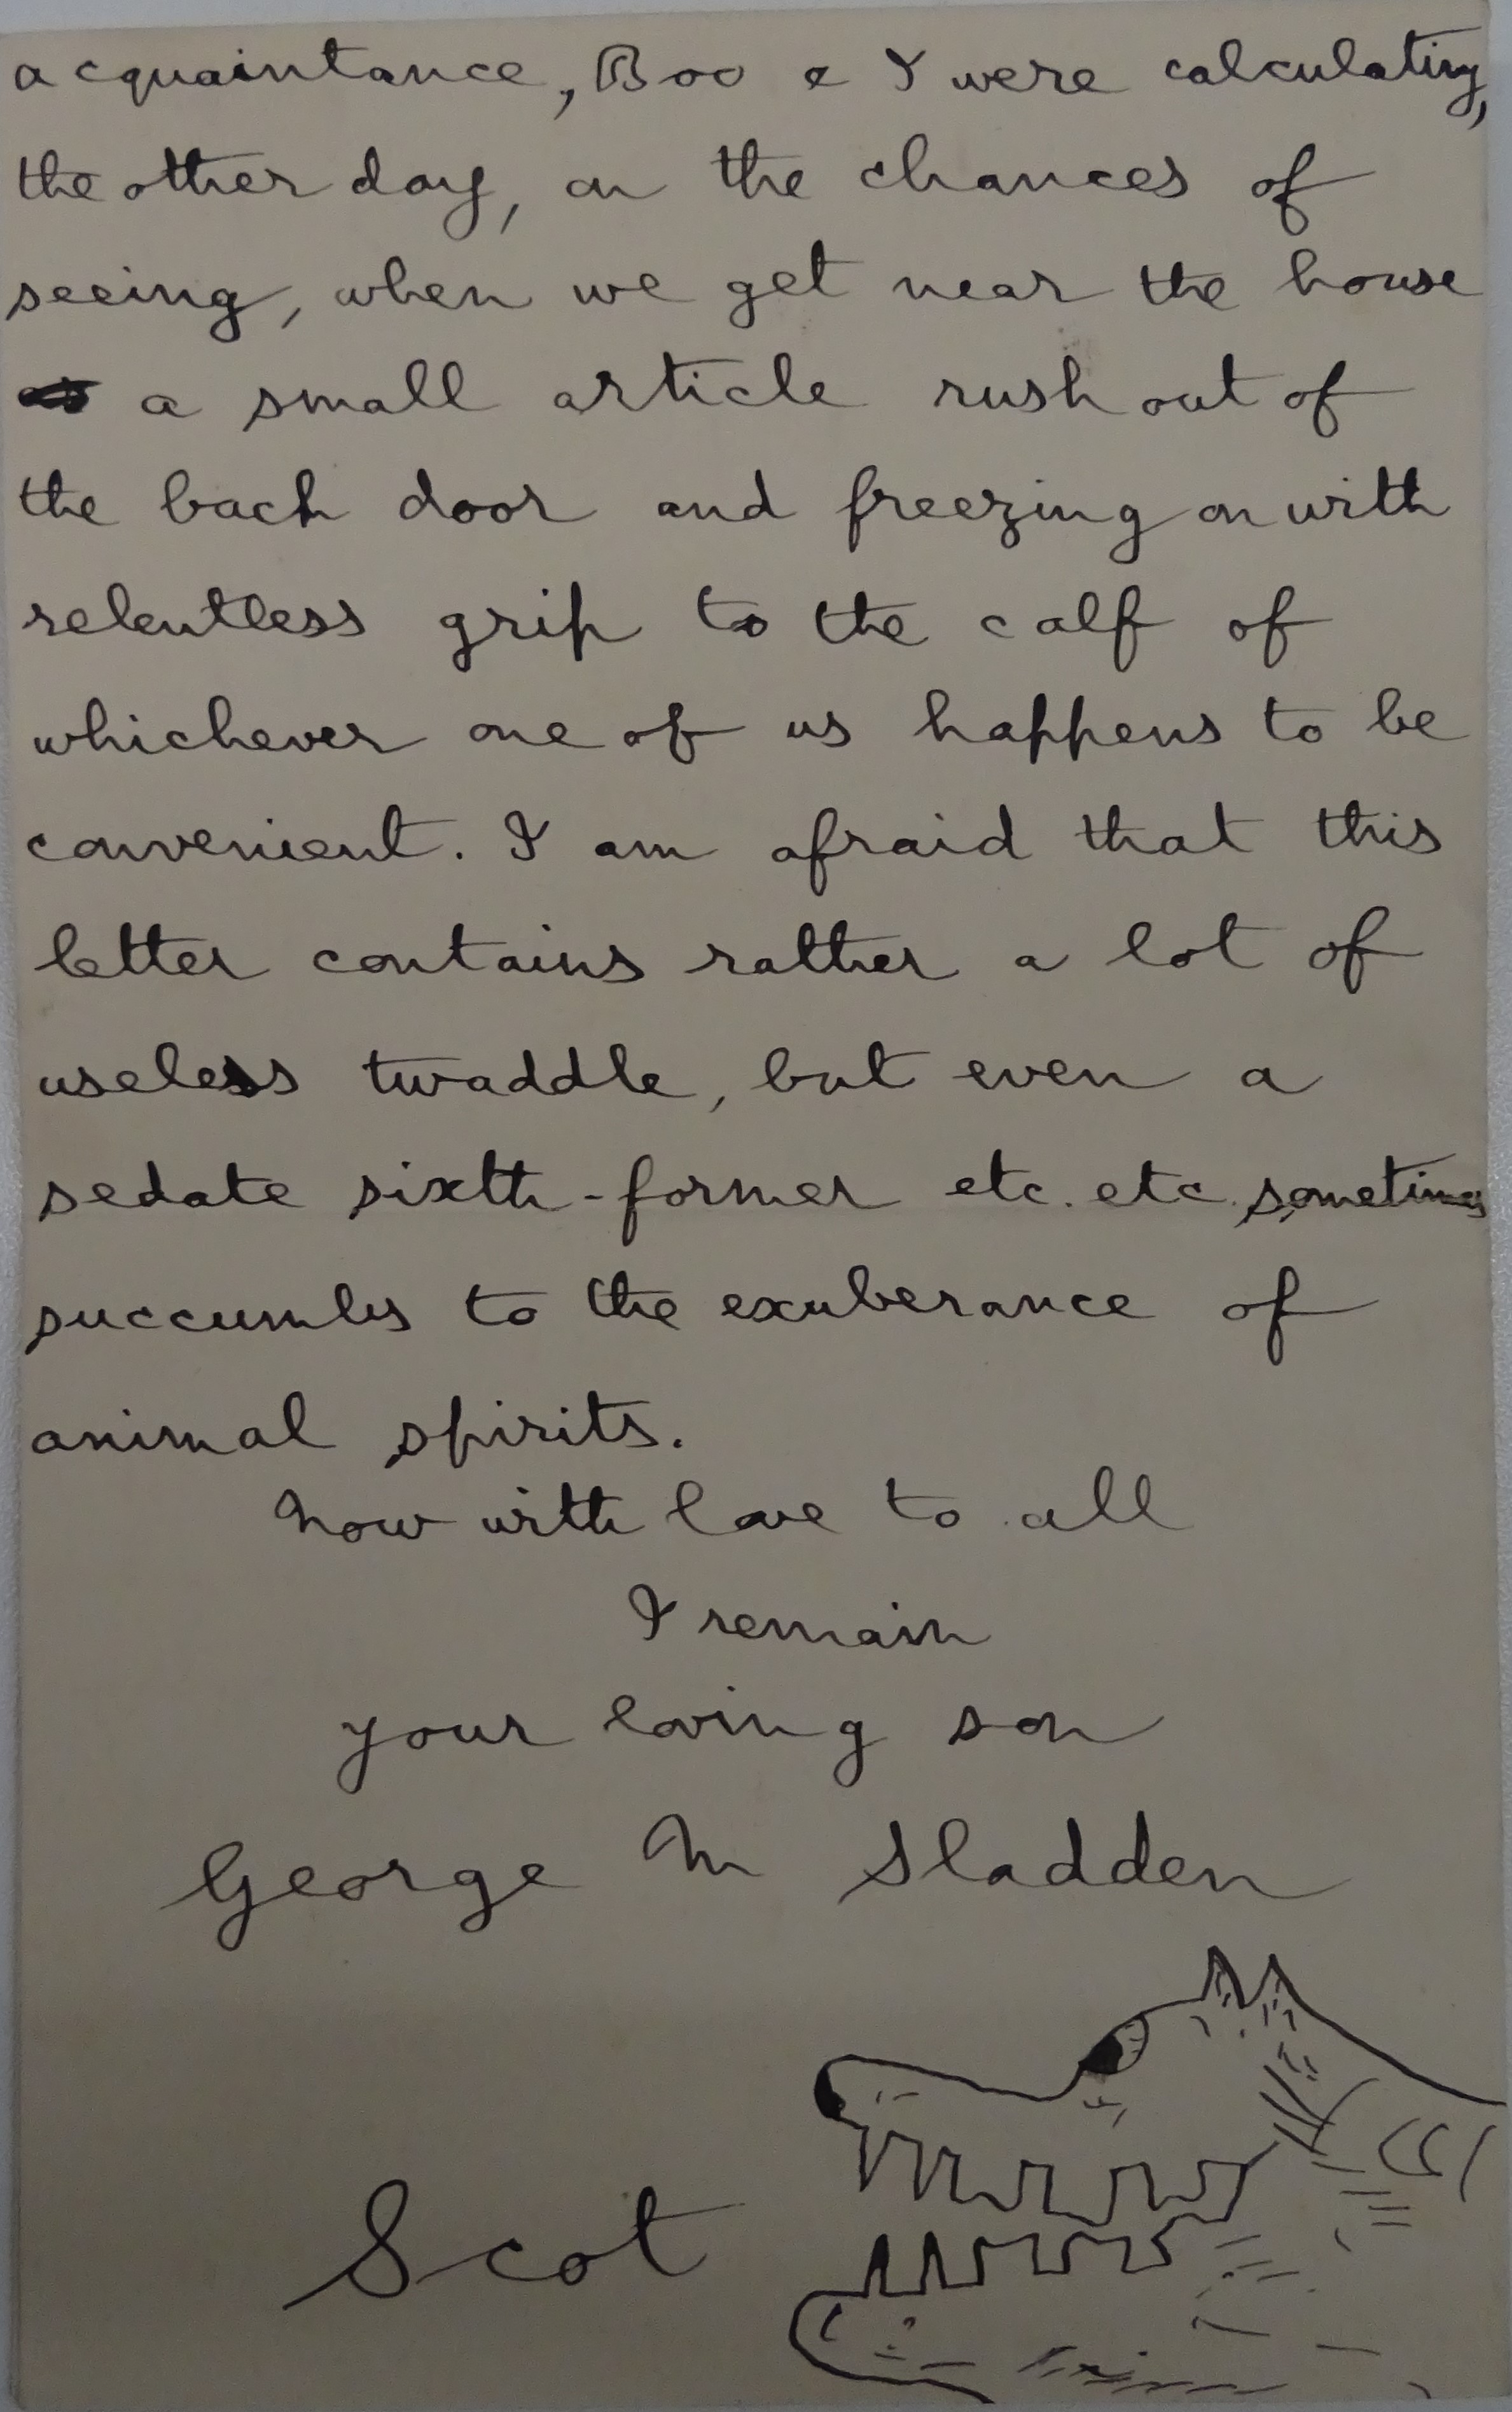 acquaintance, Boo & I were calculating,
the other day, on the chances of
seeing, when we get near the house
a small article rush out of
the back door and freezing on with
relentless grip to the calf of
whichever one of us happens to be
convenient. I am afraid that this
letter contains rather a lot of
useless twaddle, but even a
sedate sixth-former etc. etc. sometimes
succumbs to the exuberance of
animal spirits.
Now with love to all
I remain
your loving son
George M Sladden
Scot